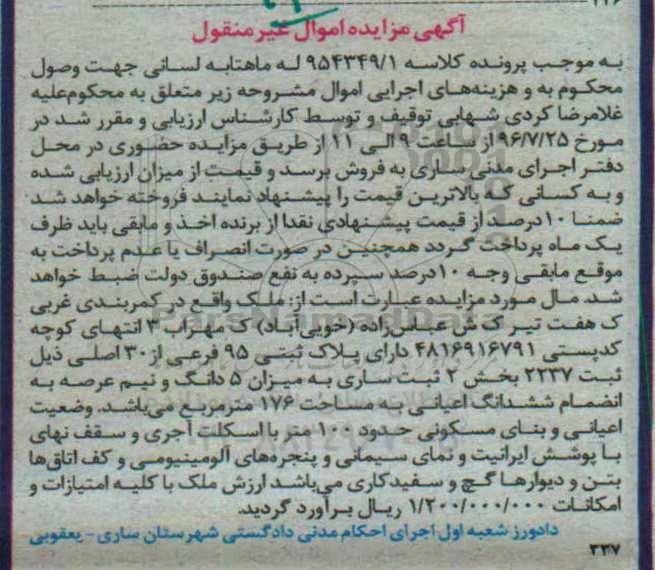 آگهی مزایده اموال غیرمنقول
به موجب پرونده کلاسه ۹۵۴۳۴۹/۱ له ماهتابه لسانی جهت وصول
محکوم به و هزینه‌های اجرایی اموال مشروحه زیر متعلق به محکوم‌علیه
غلامرضا کردی شهابی توقیف و توسط کارشناس ارزیابی و مقرر شد در
مورخ ۹۶/۷/۲۵ از ساعت ۹ الی ۱۱ از طریق مزایده حضوری در محل
دفتر اجرای مدنی ساری به فروش برسد و قیمت از میزان ارزیابی شده
و به کسانی که بالاترین قیمت را پیشنهاد نمایند فروخته خواهد شد
ضمنا ۱۰درصد از قیمت پیشنهادی نقدا از برنده اخذ و مابقی باید ظرف
یک ماه پرداخت گردد همچنین در صورت انصراف یا عدم پرداخت به
موقع مابقی وجه ۱۰درصد سپرده به نفع صندوق دولت ضبط خواهد
شد مال مورد مزایده عبارت است از: ملک واقع در کمربندی غربی
ک هفت تیر ک ش عباس‌زاده (خویی‌آباد) ک مهراب ۳ انتهای کوچه
کدپستی ۴۸۱۶۹۱۶۷۹۱ دارای پلاک ثبتی ۹۵ فرعی از ۳۰ اصلی ذیل
ثبت ۲۲۳۷ بخش ۲ ثبت ساری به میزان ۵ دانگ و نیم عرصه به
انضمام ششدانگ اعیانی به مساحت ۱۷۶ مترمربع می‌باشد. وضعیت
اعیانی و بنای مسکونی حدود ۱۰۰ متر با اسکلت آجری و سقف نهای
با پوشش ایرانیت و نمای سیمانی و پنجره‌های آلومینیومی و کف اتاق‌ها
بتن و دیوارها گچ و سفیدکاری می‌باشد ارزش ملک با کلیه امتیازات و
امکانات ۱/۲۰۰/۰۰۰/۰۰۰ ریال برآورد گردید.
دادورز شعبه اول اجرای احکام مدنی دادگستری شهرستان ساری - یعقوبی
۲۲۷
ParsNamadData